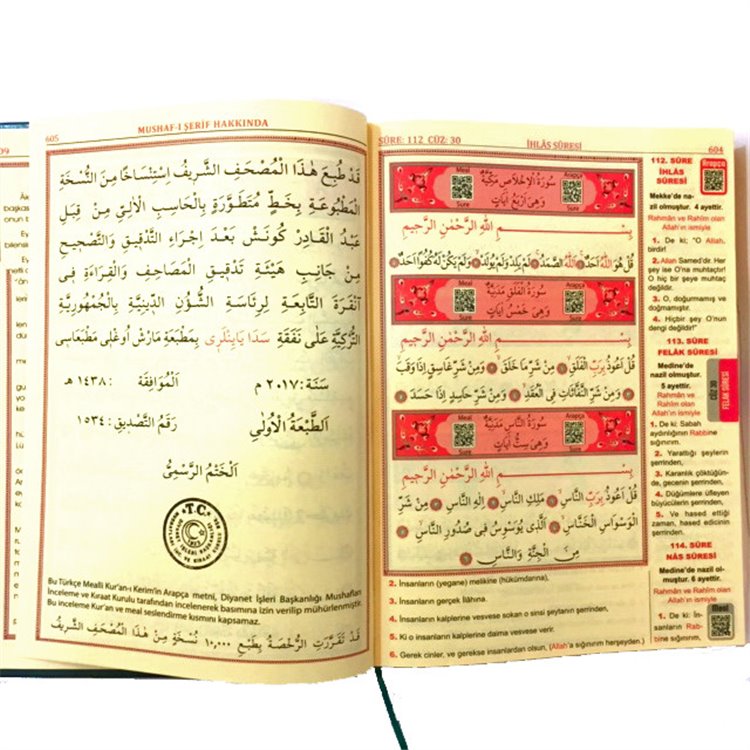 605 MUSHAF-I ŞERİF HAKKINDA
قَدْ طُبِعَ هٰذَا الْمُصْحَفُ الشَّرِيفُ اِسْتِنْسَاخًا مِنَ النُّسْخَةِ
الْمَطْبُوعَةِ بِخَطٍّ مُتَطَوِّرَةٍ بِالْحَاسِبِ الْاٰلِيِّ مِنْ قِبَلِ
عَبْدُ الْقَادِرْ كُونَشْ بَعْدَ اِجْرَاءِ التَّدْقِيقِ وَالتَّصْحِيحِ
مِنْ جَانِبِ هَيْئَةِ تَدْقِيقِ الْمَصَاحِفِ وَالْقِرَاءَةِ فِى
اَنْقَرَةَ التَّابِعَةِ لِرِئَاسَةِ الشُّؤُنِ الدِّينِيَّةِ بِالْجُمْهُورِيَّةِ
التُّرْكِيَّةِ عَلٰى نَفَقَةِ سَدَا يَايِنْلَرِى بِمَطْبَعَةِ مَارْشْ اُوغْلِى مَطْبَعَاسِى
سَنَة: ٢٠١٧ م اَلْمُوَافِقَةُ : ١٤٣٨ هـ
اَلطَّبْعَةُ الْاُولٰى رَقَمُ التَّصْدِيقِ: ١٥٣٤
اَلْخَتْمُ الرَّسْمِىُّ
T.C.
Bu Türkçe Mealli Kur'an-ı Kerim'in Arapça metni, Diyanet İşleri Başkanlığı Mushafları
İnceleme ve Kıraat Kurulu tarafından incelenerek basımına izin verilip mühürlenmiştir.
Bu inceleme Kur'an ve meal seslendirme kısmını kapsamaz.
قَدْ تَقَرَّرَتِ الرُّخْصَةُ بِطَبْعِ ١٠,٠٠٠ نُسْخَةٍ مِنْ هٰذَا الْمُصْحَفِ الشَّرِيفِ
SÛRE: 112 CÜZ: 30 İHLÂS SÛRESİ 604
Meal Arapça
سُورَةُ الْاِخْلَاصِ مَكِّيَّةٌ
وَهِىَ اَرْبَعُ اٰيَاتٍ
Sure Sure
بِسْمِ اللّٰهِ الرَّحْمٰنِ الرَّحِيمِ
قُلْ هُوَ اللّٰهُ اَحَدٌ ١ اَللّٰهُ الصَّمَدُ ٢ لَمْ يَلِدْ وَلَمْ يُولَدْ ٣ وَلَمْ يَكُنْ لَهُ كُفُوًا اَحَدٌ ٤
Meal Arapça
سُورَةُ الْفَلَقِ مَدَنِيَّةٌ
وَهِىَ خَمْسُ اٰيَاتٍ
Sure Sure
بِسْمِ اللّٰهِ الرَّحْمٰنِ الرَّحِيمِ
قُلْ اَعُوذُ بِرَبِّ الْفَلَقِ ١ مِنْ شَرِّ مَا خَلَقَ ٢ وَمِنْ شَرِّ غَاسِقٍ اِذَا وَقَبَ
٣ وَمِنْ شَرِّ النَّفَّاثَاتِ فِى الْعُقَدِ ٤ وَمِنْ شَرِّ حَاسِدٍ اِذَا حَسَدَ ٥
Meal Arapça
سُورَةُ النَّاسِ مَدَنِيَّةٌ
وَهِىَ سِتُّ اٰيَاتٍ
Sure Sure
بِسْمِ اللّٰهِ الرَّحْمٰنِ الرَّحِيمِ
قُلْ اَعُوذُ بِرَبِّ النَّاسِ ١ مَلِكِ النَّاسِ ٢ اِلٰهِ النَّاسِ ٣ مِنْ شَرِّ
الْوَسْوَاسِ الْخَنَّاسِ ٤ اَلَّذِى يُوَسْوِسُ فِى صُدُورِ النَّاسِ ٥
مِنَ الْجِنَّةِ وَالنَّاسِ ٦
2. İnsanların (yegane) melikine (hükümdarına),
3. İnsanların gerçek İlâhına.
4. İnsanların kalplerine vesvese sokan o sinsi şeytanın şerrinden,
5. Ki o insanların kalplerine daima vesvese verir.
6. Gerek cinler, ve gerekse insanlardan olsun, (Allah'a sığınırım herşeyden.)
112. SÛRE
İHLÂS
SÛRESİ
Arapça
Mekke'de na-
zil olmuştur. 4 ayettir.
Rahmân ve Rahîm olan
Allah'ın ismiyle
1. De ki; "O Allah,
birdir!
2. Allah Samed'dir. Her
şey ise O'na muhtaçtır!
O hiç bir şeye muhtaç
değildir.
3. O, doğurmamış ve
doğmamıştır.
4. Hiçbir şey O'nun
dengi değildir!"
113. SÛRE
FELÂK SÛRESİ
Medine'de
nazil olmuştur.
5 ayettir.
Rahmân ve
Rahîm olan
Allah'ın ismiyle
1. De ki: Sabah
aydınlığının Rabbine
sığınırım.
2. Yarattığı şeylerin
şerrinden,
3. Karanlık çöktüğün-
de, gecenin şerrinden,
4. Düğümlere üfleyen
büyücülerin şerrinden,
5. Ve hased ettiği
zaman, hased edicinin
şerrinden.
114. SÛRE
NÂS SÛRESİ
Medine'de nazil ol-
muştur. 6 ayettir.
Rahmân ve Rahîm olan
Allah'ın ismiyle
1. De ki: İn-
sanların Rab-
bine sığınırım,
Meal
CÜZ 30
FELAK SÛRESİ